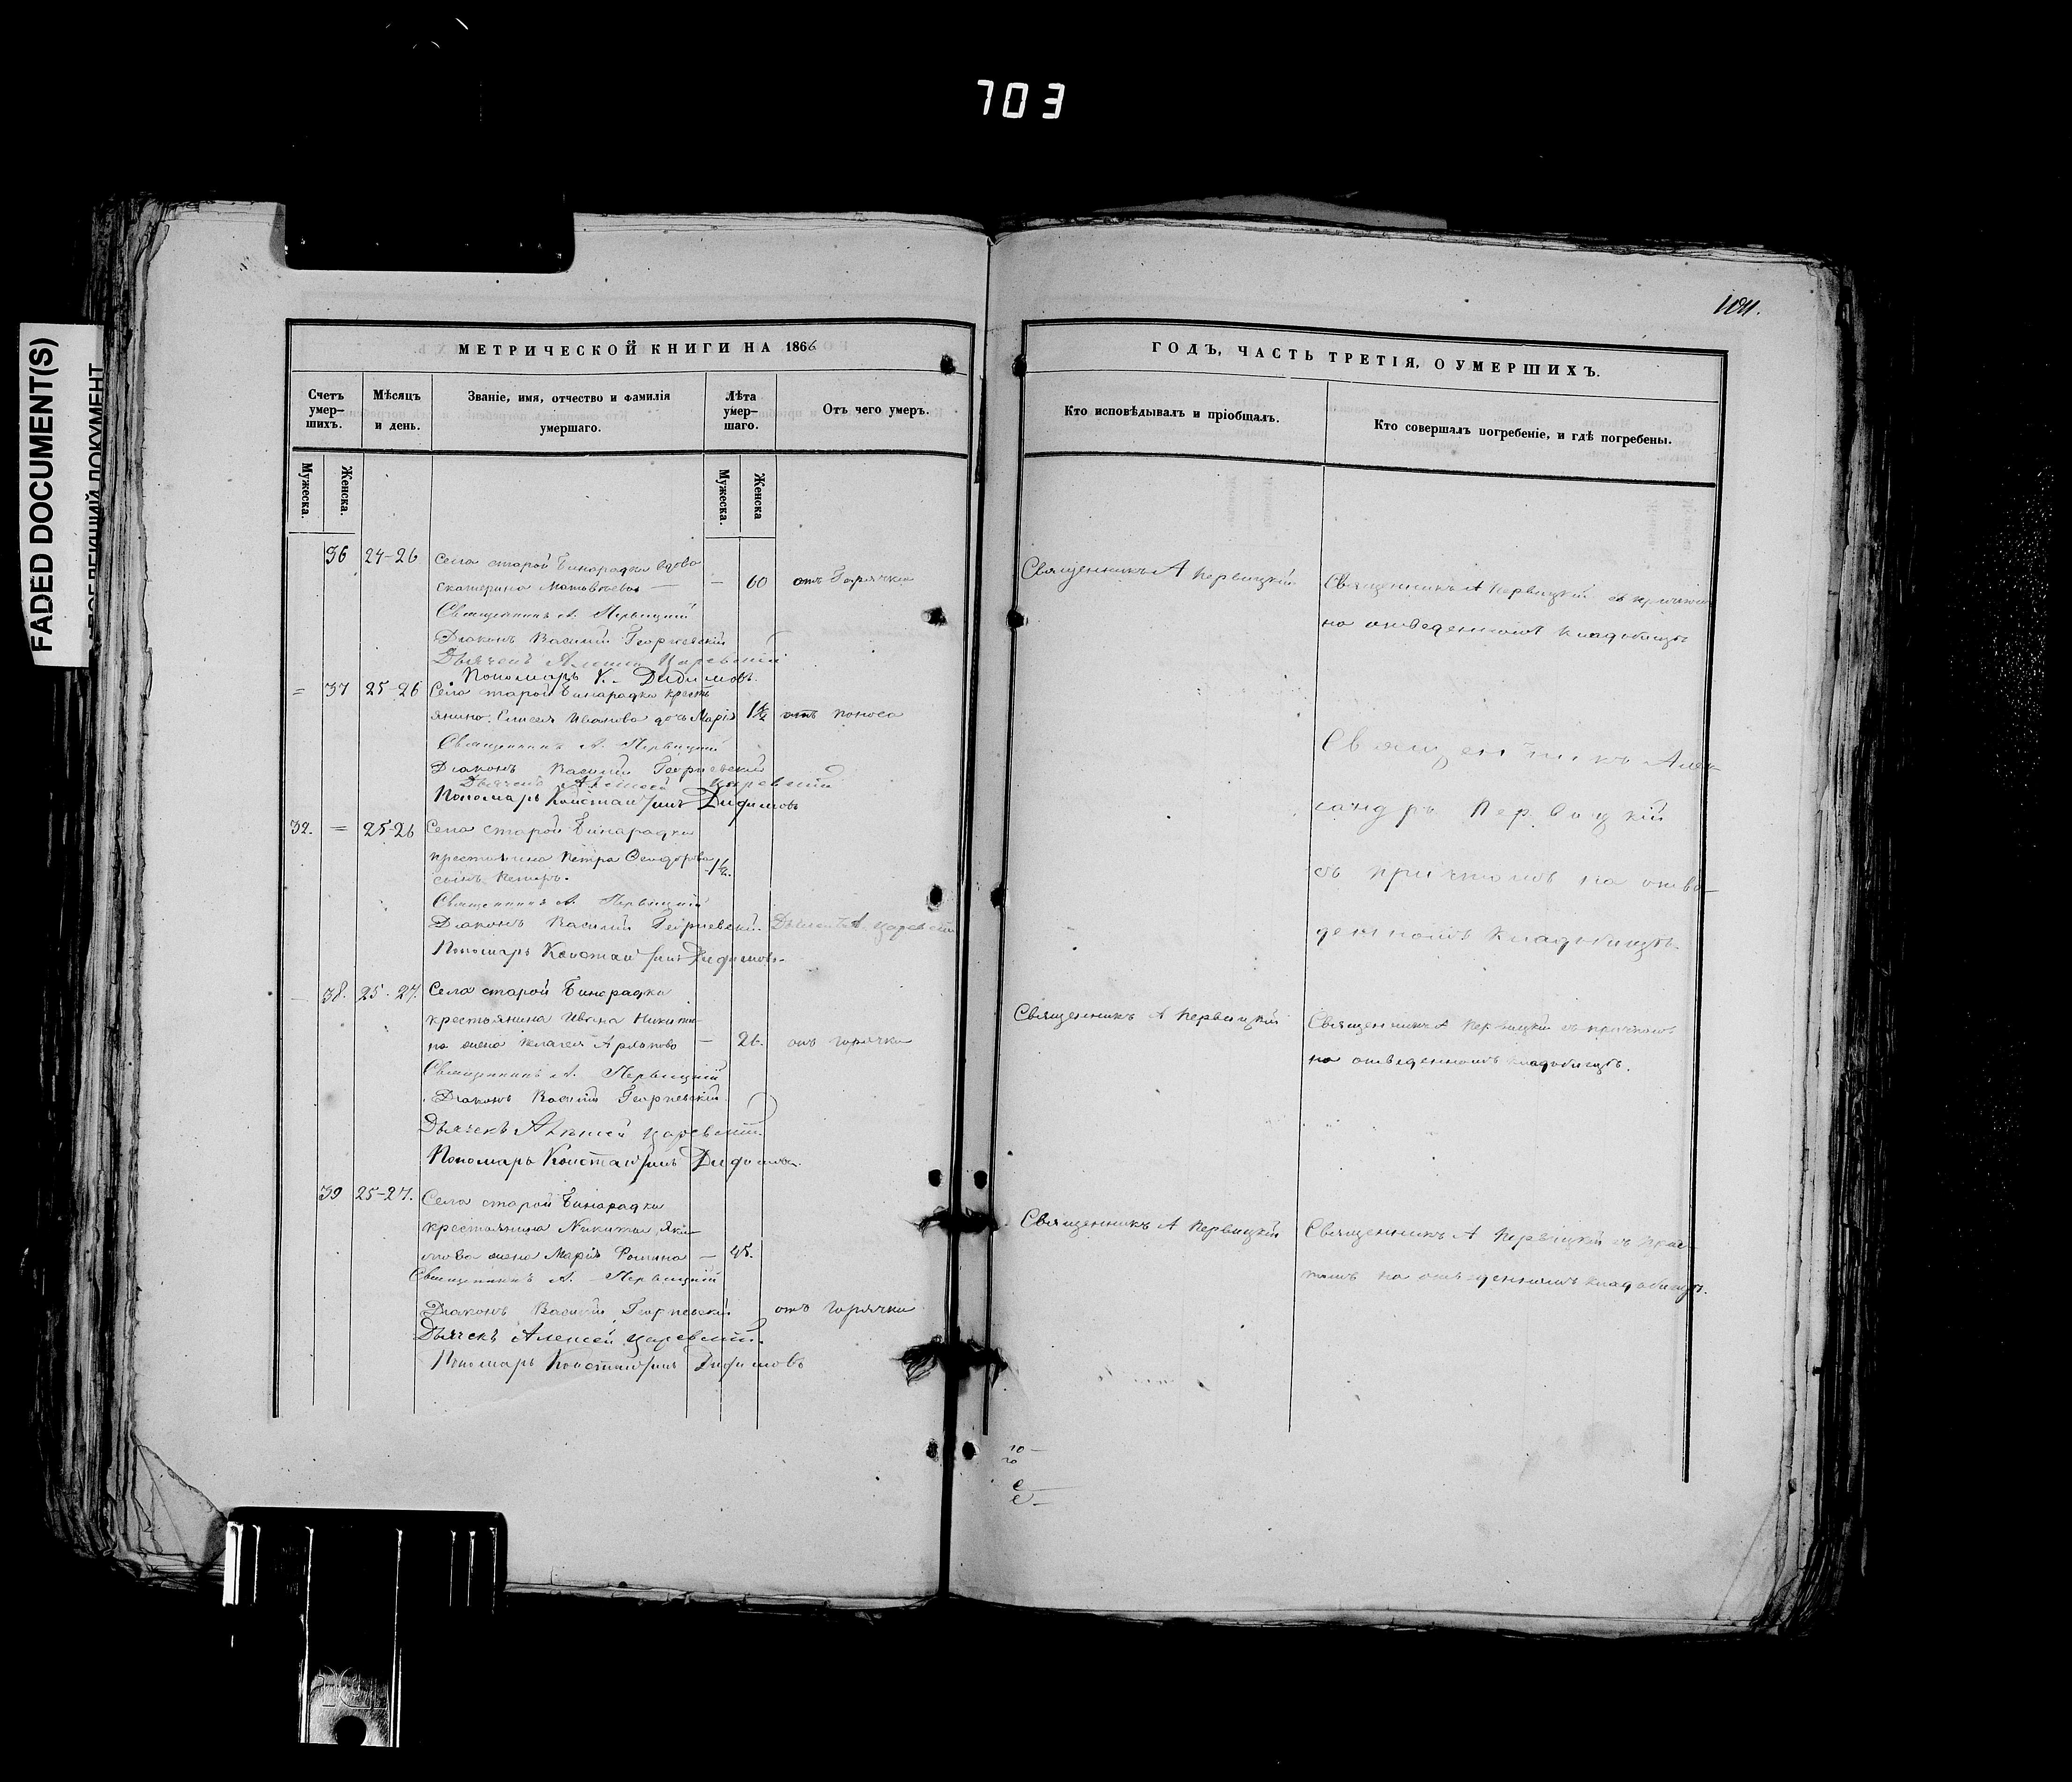 703
FADED DOCUMENT(S)
МЕТРИЧЕСКОЙ КНИГИ НА 1866
Счетъ умер-
шихъ.
Мѣсяцъ
и день.
Званіе, имя, отчество и фамилія
умершаго.
Лѣта
умер-
шаго.
Отъ чего умеръ.
Мужеска.
Женска.
Мужеска.
Женска
36 24-26 Села старой Бинарадки вдова
Екатерина Матвѣева — — 60 отъ Горячки
Священникъ А. Первицкій
Діаконъ Василій Георгіевскій
Дьячекъ Алексѣй Царевскій
Пономарь К. Дидимовъ.
= 37 25-26 Села старой Бинарадки кресть
янина Елисея Иванова дочь Марія 1½ отъ поноса
Священникъ А. Первицкій
Діаконъ Василій Георгіевскій
Дьячекъ Алексей Царевскій
Пономарь Константинъ Дидимовъ
32. = 25-26 Села старой Бинарадки
крестьянина Петра Сендорова 1½.
сынъ Петръ.
Священникъ А. Первицкій
Діаконъ Василій Георгіевскій Дьячекъ А. Царевскій
Пономарь Константинъ Дидимовъ.
38. 25-27. Села старой Бинарадки
крестьянина Ивана Никити-
на жена — 26. отъ горячки
Священникъ А. Первицкій
Діаконъ Василій Георгіевскій
Дьячекъ Алексей Царевскій.
Пономарь Константинъ Дидимовъ.
39 25-27. Села старой Бинарадки
крестьянина Никиты Яки-
мова жена Марія — 45.
Священникъ А. Первицкій
Діаконъ Василій Георгіевскій отъ горячки
Дьячекъ Алексей Царевскій.
Пономарь Константинъ Дидимовъ
ГОДЪ, ЧАСТЬ ТРЕТІЯ, О УМЕРШИХЪ.
Кто исповѣдывалъ и пріобщалъ.
Кто совершалъ погребеніе, и гдѣ погребены.
Священникъ А Первицкій
Священникъ А Первицкій съ причтомъ
на отведенномъ кладбищѣ
Священникъ Алек-
сандръ Первицкій
съ причтомъ на отве-
денномъ кладбищѣ.
Священникъ А Первицкій
Священникъ А Первицкій съ причтомъ
на отведенномъ кладбищѣ.
Священникъ А Первицкій
Священникъ А Первицкій съ прич-
томъ на отведенномъ кладбищѣ.